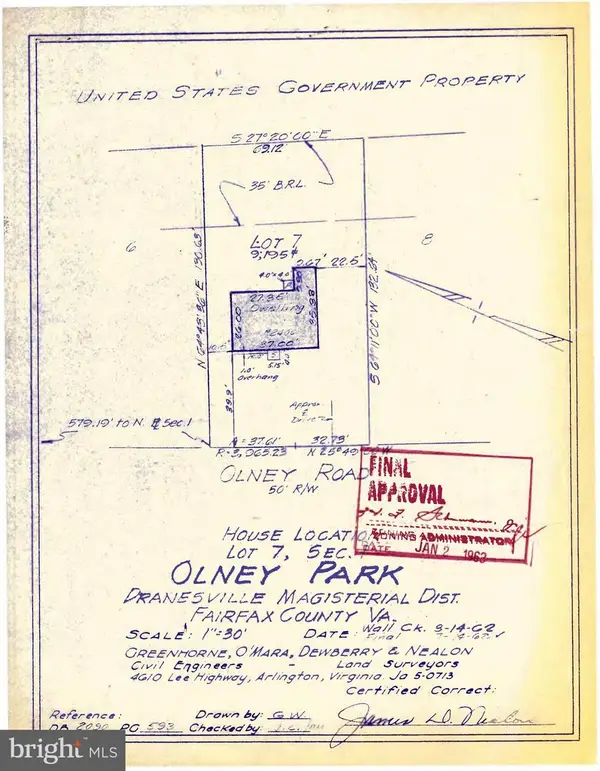 UNITED STATES GOVERNMENT PROPERTY
S 27° 20' 00" E
69.12'
35' B.R.L.
6
LOT 7
8
N 64° 43' 26" E 130.63'
S 64° 11' 00" W 132.64'
22.5'
4.0'x4.0'
27.33
Dwelling
26.00
37.00
10.5'
5.15
1.0'
Overhang
39.9'
Approx.
Drive
579.19' to N. Sec. 1
A = 37.61' 32.73'
R = 3,065.23 N 25° 49'
OLNEY ROAD
50' R/W
FINAL
APPROVAL
ZONING ADMINISTRATOR
DATE JAN 2 1963
HOUSE LOCATION
LOT 7, SEC. 1
OLNEY PARK
DRANESVILLE MAGISTERIAL DIST.
FAIRFAX COUNTY VA.
SCALE: 1"=30' DATE: Wall Ck. 3-14-62
Final
GREENHORNE, O'MARA, DEWBERRY & NEALON
Civil Engineers - Land Surveyors
4610 Lee Highway, Arlington, Virginia Ja 5-0713
Certified Correct:
Reference: Drawn by: G.W.
DB 2090 PG 593 Checked by:
James D. Nealon
bright MLS